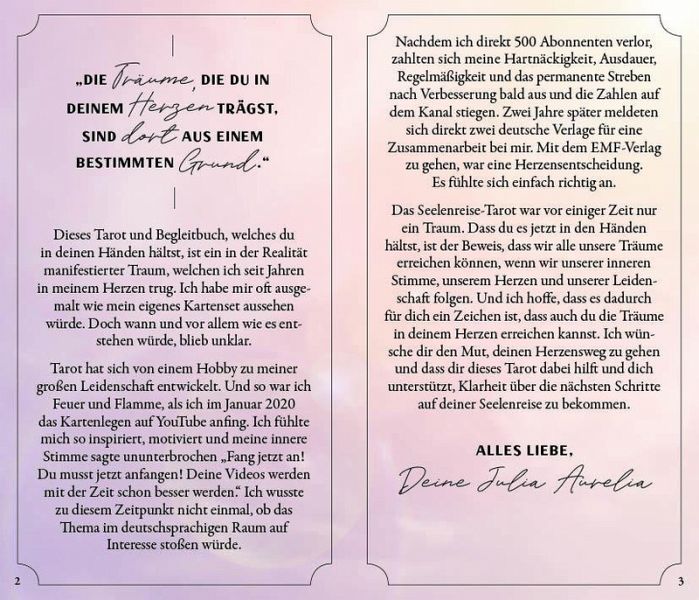 „DIE Träume, DIE DU IN
DEINEM Herzen TRÄGST,
SIND dort AUS EINEM
BESTIMMTEN Grund.“
Dieses Tarot und Begleitbuch, welches du
in deinen Händen hältst, ist ein in der Realität
manifestierter Traum, welchen ich seit Jahren
in meinem Herzen trug. Ich habe mir oft ausge-
malt wie mein eigenes Kartenset aussehen
würde. Doch wann und vor allem wie es ent-
stehen würde, blieb unklar.
Tarot hat sich von einem Hobby zu meiner
großen Leidenschaft entwickelt. Und so war ich
Feuer und Flamme, als ich im Januar 2020
das Kartenlegen auf YouTube anfing. Ich fühlte
mich so inspiriert, motiviert und meine innere
Stimme sagte ununterbrochen „Fang jetzt an!
Du musst jetzt anfangen! Deine Videos werden
mit der Zeit schon besser werden.“ Ich wusste
zu diesem Zeitpunkt nicht einmal, ob das
Thema im deutschsprachigen Raum auf
Interesse stoßen würde.
2
Nachdem ich direkt 500 Abonnenten verlor,
zahlten sich meine Hartnäckigkeit, Ausdauer,
Regelmäßigkeit und das permanente Streben
nach Verbesserung bald aus und die Zahlen auf
dem Kanal stiegen. Zwei Jahre später meldeten
sich direkt zwei deutsche Verlage für eine
Zusammenarbeit bei mir. Mit dem EMF-Verlag
zu gehen, war eine Herzensentscheidung.
Es fühlte sich einfach richtig an.
Das Seelenreise-Tarot war vor einiger Zeit nur
ein Traum. Dass du es jetzt in den Händen
hältst, ist der Beweis, dass wir alle unsere Träume
erreichen können, wenn wir unserer inneren
Stimme, unserem Herzen und unserer Leiden-
schaft folgen. Und ich hoffe, dass es dadurch
für dich ein Zeichen ist, dass auch du die Träume
in deinem Herzen erreichen kannst. Ich wün-
sche dir den Mut, deinen Herzensweg zu gehen
und dass dir dieses Tarot dabei hilft und dich
unterstützt, Klarheit über die nächsten Schritte
auf deiner Seelenreise zu bekommen.
ALLES LIEBE,
Deine Julia Aurelia
3